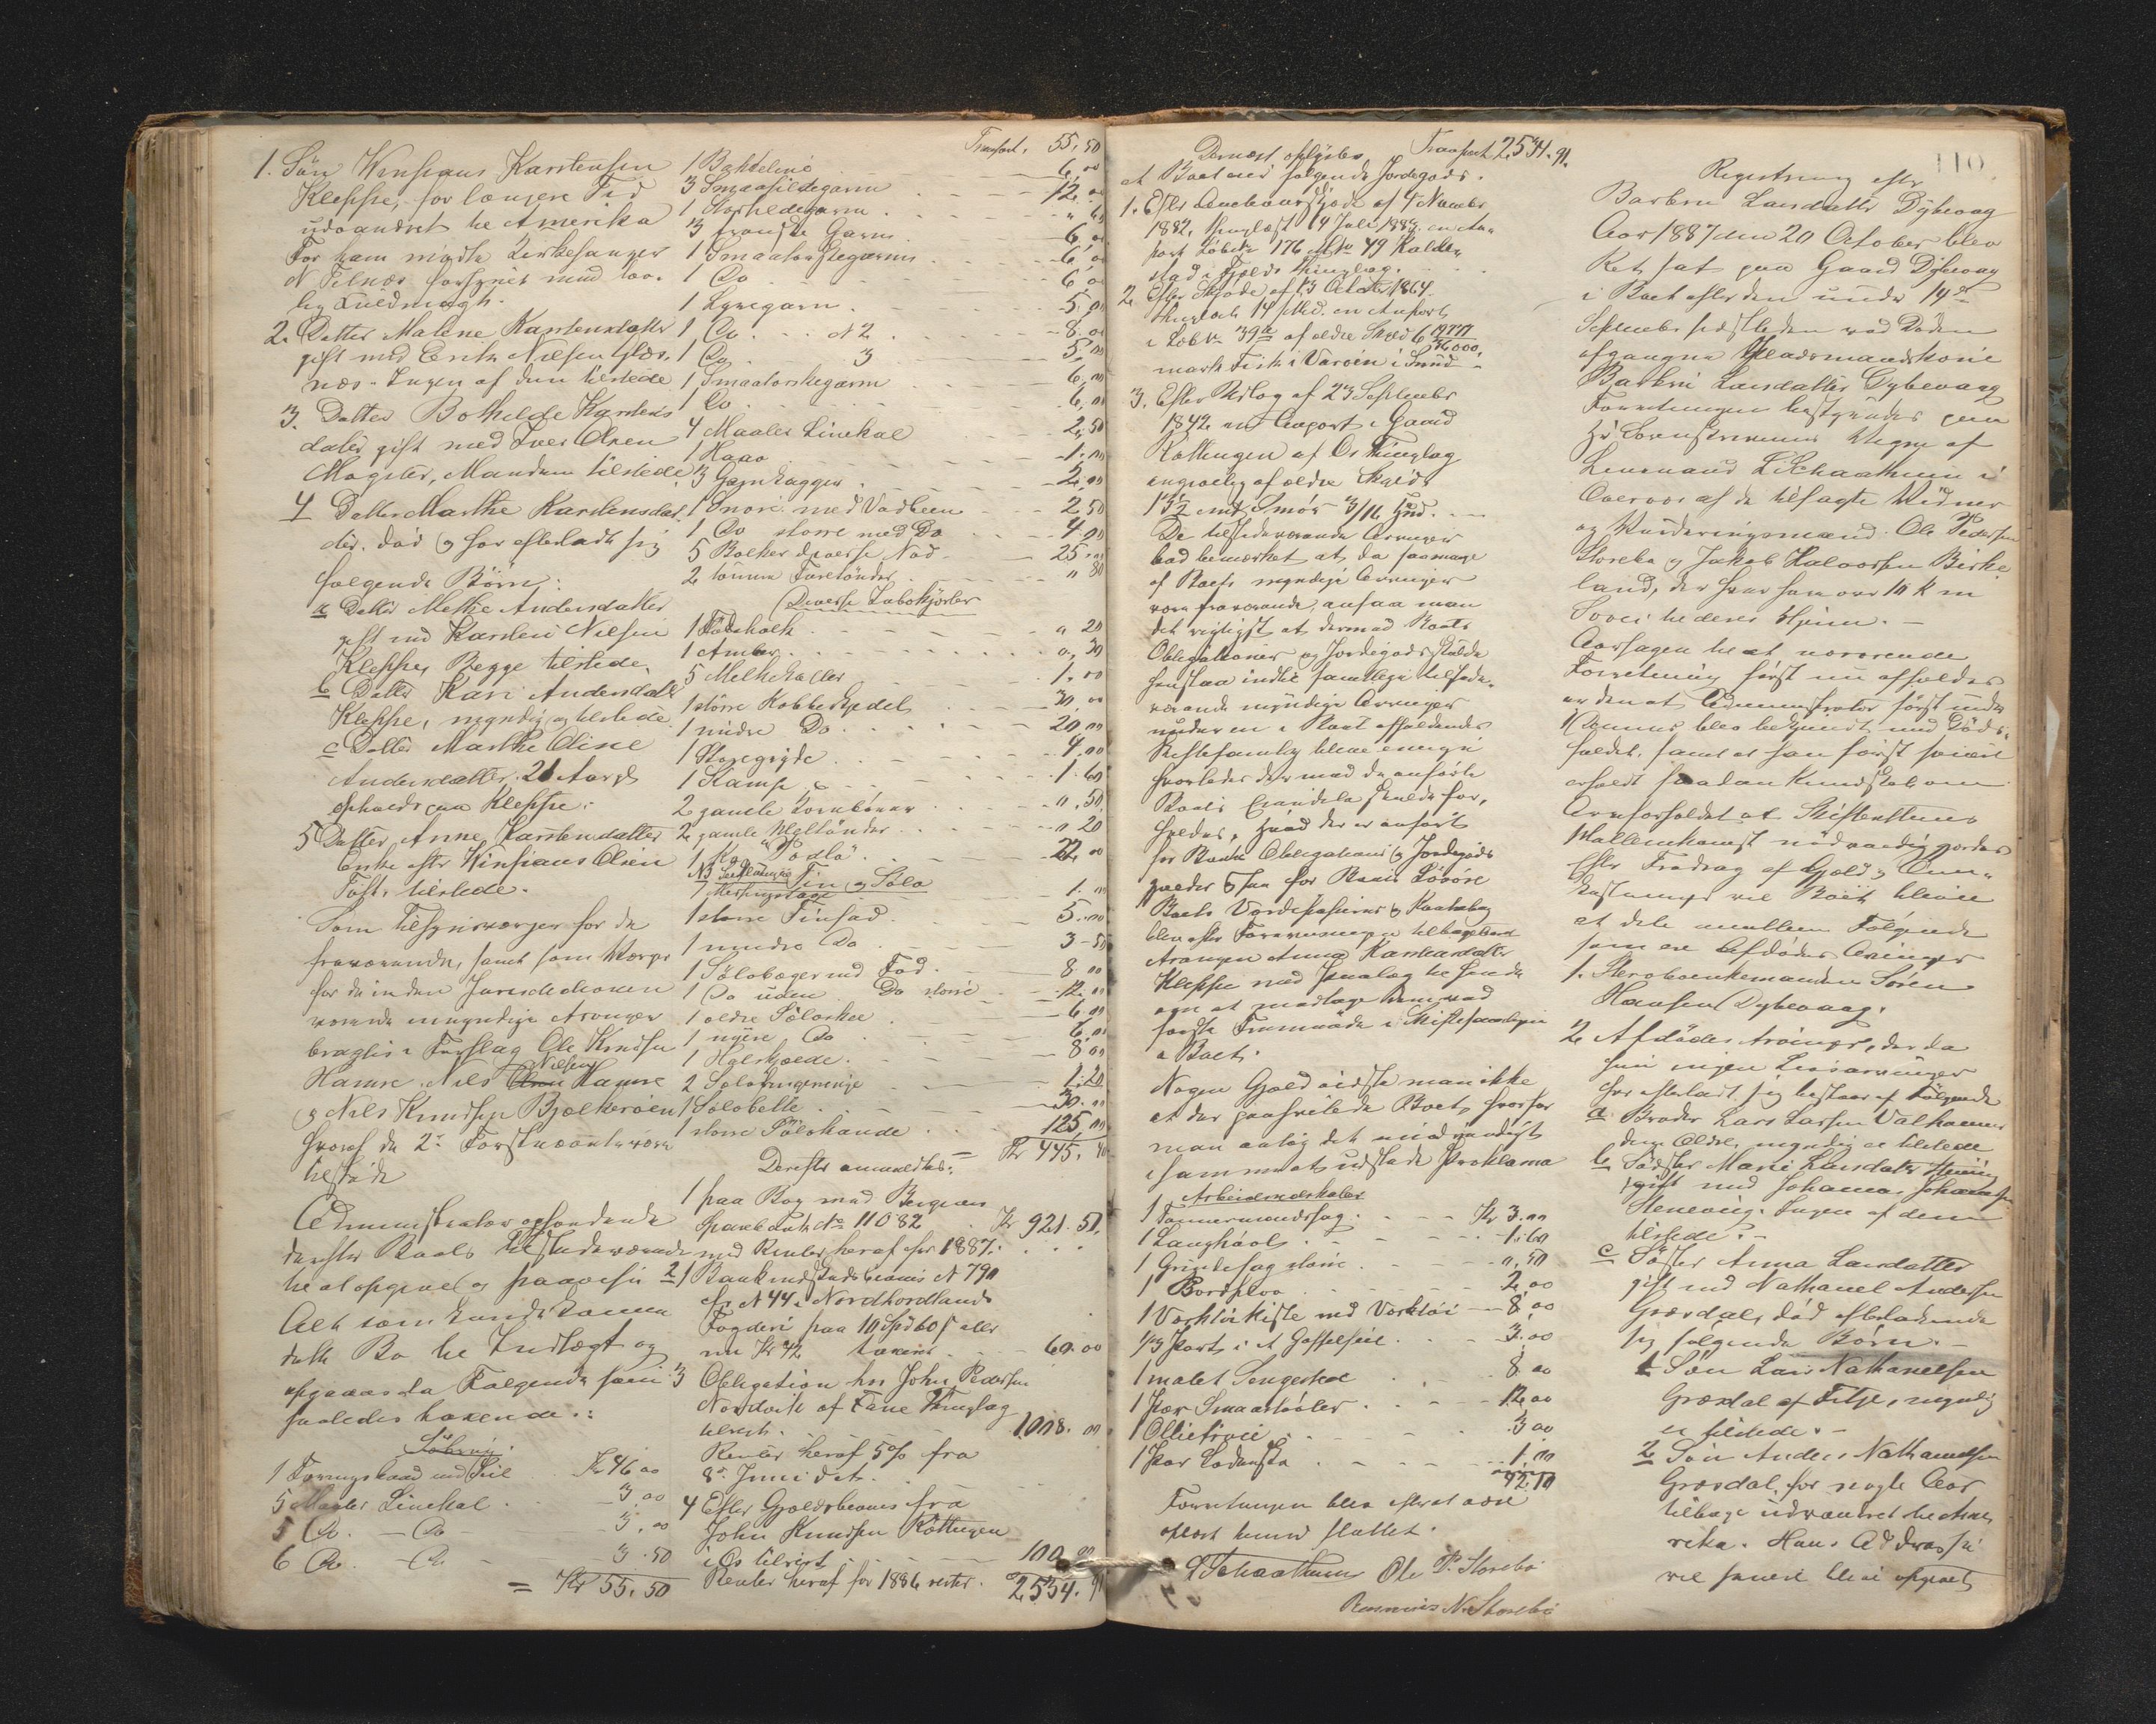 1. Søn Winsjans Karstensen
Kleppe, for længere Tid
udvandret til Amerika
For ham mødte Kirkesanger
N Tilnæs forsynet med lov-
lig Fuldmagt.
2. Datter Malene Karstensdatter
gift med Erik Nilsen Glæs-
næs. Ingen af dem tilstede
3. Datter Bothilde Karstens
datter gift med Iver Olsen
Møgster, Manden tilstede
4 Datter Marthe Karstensdat-
ter død og har efterladt sig
følgende Børn:
a Datter Mette Andersdatter
gift med Karsten Nilsen
Kleppe, Begge tilstede,
b Datter Kari Andersdatter
Kleppe, myndig og tilstede
c Datter Marthe Oline
Andersdatter 21 Aar gl
opholdt paa Kleppe.
5 Datter Anne Karstensdatter
Enke efter Winsjans Olsen
Toft, tilstede.
Som Tilsynsværger for de
fraværende, samt som Værge
for de inden Jurisdictionen
værende umyndige Arvinger
bragtes i Forslag Ole Knudsen
Hamre, Nils Nilsen Hamre
og Nils Knudsen Bjelkerøen
hvoraf de 2de Førstnævnte vare
tilstede
Administrator opfordrede
derefter Boets Tilstedeværende
til at opgive og paavise
Alt som kunde komme
dette Bo til Indtægt og
opgaves da Følgende som
saaledes lyder:
Søbrug.
1 Føringsbaad med Seil Kr 46,00
5 Maaler Linekal 3,00
5 Do. — Do — 3,00
6 Do. — Do. — 3.50
= Kr 55,50
Transport. 55,50
1 Bakkeline 6,00
3 Smaasildegarn 12,00
1 Storsildegarn " 60
3 franske Garn 6,00
1 Smaatorskegarn 6,00
1 Do 6,00
1 Lyregarn 5,00
1 Do. N 2 8.00
1 Do. 3 5,00
1 Smaatorskegarn 6,00
1 Do 6,00
4 Maaler Linekal 2,50
1 Haav 1.00
3 Garnkagger 2,00
1 Snøre med Vadbeen 2,50
1 Do større med Do 4,00
5 Bolker diverse Nod 25,00
2 tomme Faretønder " 80
Diverse Løbekjørler
1 Fødeholk " 20
1 Ambar " 30
5 Melkekoller 1.00
1 større Kobbekjedel 30,00
1 mindre Do 20,00
1 Storgryde 4,00
1 Kamse 1.60
2 gamle Kornbørar ",50
2 gamle Meltønder " 20
1 Ko "Dodlø" 22,00
Tin og Sølv
1.00
1 større Tinfad 5.00
1 mindre Do 3-50
1 Sølvbæger med Fod 8.00
1 Do uden Do større 12.00
1 ældre Sølvskee 6.00
1 nyere Do 6.00
1 Halskjæde 8.00
2 Sølvfingerringe 1:20
1 Sølvbelte 30.00
1 større Sølvkande 125,00
= Kr 445,40
Derefter anmeldtes:
1 paa Bog med Bergens
Sparebank No 11082 Kr 921.51.
med Renter heraf for 1887.
2 1 Bankindskudsbevis N 790
fra N 44 i Nordhordlands
Fogderi paa 10 Spd 60 s eller
nu Kr 42 taxeret 60.00
3 Obligation hos John Pedersen
Nordvik af Fane Thinglag
tilrest. 1008.00
Renter heraf 5% fra
8de Juni d.A.
4 Efter Gjældsbevis fra
John Knudsen Røttingen
i Os tilrest 100.00
Renter heraf for 1886 rester. 2,534.91
Transport 2,534.91.
Dernæst oplystes
at Boet eier følgende Jordegods.
1. Efter Auctionsskjøde af 4 November
1882, thinglæst 14 Juli 1883. en An-
part Løbe No 176 Mtr No 49 Kalde-
stad i Fjelds Thinglag.
2. Efter Skjøde af 13 October 1864
thinglæst 14 s.Md. en Anpart
i Løb No 39 af ældre Skyld
mark Fisk i Varøen i Sund
3. Efter Udlæg af 23 September
1842 en Anpart i Gaard
Røttingen af Os Thinglag
angivelig af ældre Skyld
1 1/2 mk Smør 3/16 Hud.
De tilstedeværende Arvinger
bad bemærket at da saamange
af Boets myndige Arvinger
vare fraværende, ansaa man
det rigtigst at dermed Boets
Obligationer og Jordegods skulde
henstaa indtil samtlige tilstede-
værende myndige Arvinger
under en i Boet afholdendes
Skiftesamling bleve enige
hvorledes der med de anførte
Boets Eiendele skulde for-
holdes. Hvad der er anført
for Boets Obligationer og Jordegods
gjælder og saa for Boets Løsøre
Boets Værdipapirer og Kontrabog
blev efter Forevisningen tilbageleveret
Arvingen Anna Karstensdatter
Kleppe med Paalæg til hende
om at medtage dem ved
første Fremmøde i Skiftesamlingen
i Boet.
Nogen Gjæld vidste man ikke
at der paahvilede Boet, hvorfor
man antog det unødvendigt
i sammes at udstede Proklama
Arbeidsredskaber
1 Tømmermandssag Kr 3.00
1 Langhøvl 1.60
1 Grindesag større ",50
1 Bordplov 2,00
1 Værktøikiste med Værktøi — 8,00
1/3 Part i et Gaffelseil 3.00
1 malet Sengested 8.00
1 Par Smaastøvler 12,00
1 Olietrøie 3 00
1 Par Lodensko 1.00
42.10
Forretningen blev efterat være
oplæst hermed sluttet.
L Schaathun Ole P. Storebø
Rasmus N. Storebø
110.
Registrering efter
Barbru Larsdatter Dybevaag
Aar 1887 den 20 October blev
Ret sat paa Gaard Dybevaag
i Boet efter den under 14de
September sidstleden ved Døden
afgangne Gaardmandskone
Barbru Larsdatter Dybevaag
Forretningen bestyredes paa
Hr Sorenskriverens Vegne af
Lensmand L Schaathun i
Overvær af de tilsagte Vidner
og Vurderingsmænd Ole Pedersen
Storebø og Jakob Halvorsen Birke-
land, der hver har over 10 k m
Sovei til deres Hjem. —
Aarsagen til at nærværende
Forretning først nu afholdes
er den at Administrator først under
1ste Dennes blev bekjendt med Døds-
faldet, samt at han først senere
erholdt saadan Kundskab om
Arveforholdet at Skifterettens
Mellemkomst nødvendig gjordes
Efter Fradrag af Gjæld og Om-
kostninger vil Boet blive
at dele mellem Følgende
som ere Afdødes Arvinger
1. Sterboenkemanden Søren
Hansen Dybevaag.
2 Afdødes Arvinger, der da
hun ingen Livsarvinger
har efterladt sig bestaar af Følgende
a Broder Lars Larsen Valhammer
den Ældre, myndig er tilstede
b Søster Marie Larsdatter Stening
gift med Johannes Johannesen
Stenevig. Ingen af dem
tilstede. —
c Søster Anna Larsdatter
gift med Nathanael Andersen
Græsdal, død efterladende
sig følgende Børn. —
1 Søn Lars Nathanaelsen
Græsdal af Fitje, myndig
er tilstede. —
2 Søn Anders Nathanaelsen
Græsdal, for nogle Aar
tilbage udvandret til Ame-
rika. Hans Addresse
vil senere blive opgivet